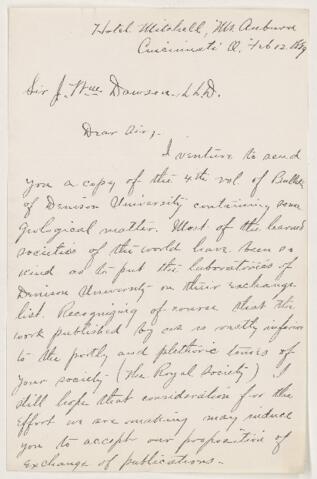 Hotel Mitchell, Mt. Auburn
Cincinnati O. Feb 12
Sir J. Wm Dawson, LLD.
Dear Sir;
I venture to send
you a copy of the 4th vol. of Bullet
of Denison University containing some
geological matter. Most of the learned
societies of the world have been so
kind as to put the laboratories of
Denison University on their exchange
list. Recognizing of course that the
work published by us is vastly inferior
to the portly and plethoric tomes of
your society (the Royal Society) I
still hope that consideration for the
effort we are making may induce
you to accept our proposition of
exchange of publications.